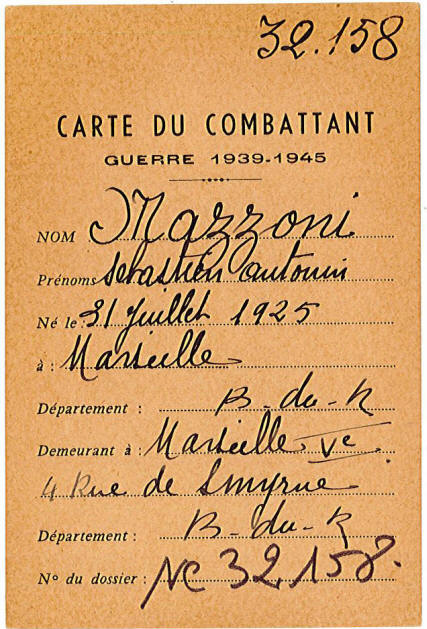 32.158
CARTE DU COMBATTANT
GUERRE 1939-1945
NOM Mazzoni
Prénoms Sebastien antonin
Né le : 31 Juillet 1925
à : Marseille
Département : B-du-R
Demeurant à : Marseille Ve
4 Rue de Smyrne
Département : B-du-R
N° du dossier : NC 32,158.